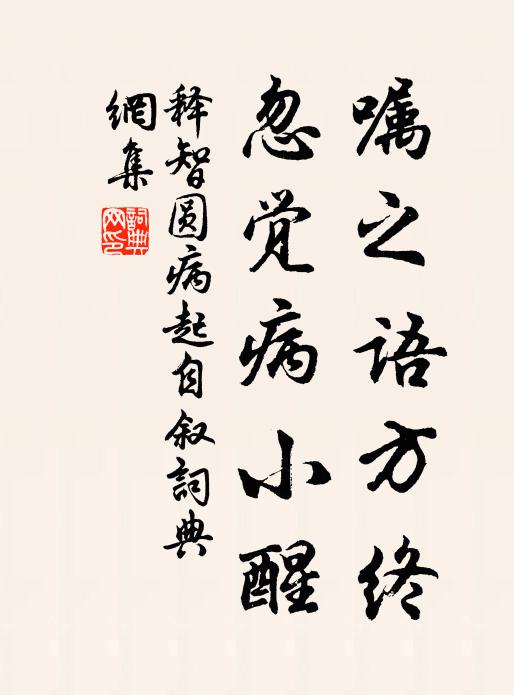 嘱之语方终
忽觉病小醒
释智圆病起自叙詞典
網集
詞典
网印